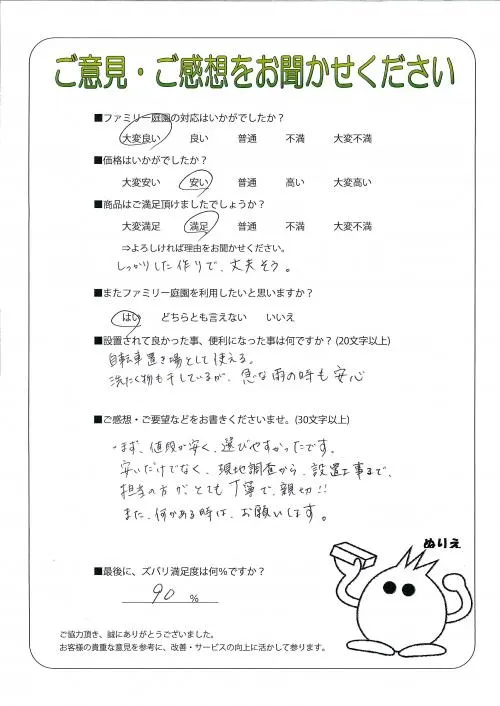 ご意見・ご感想をお聞かせください
■ファミリー庭園の対応はいかがでしたか？
大変良い 良い 普通 不満 大変不満
■価格はいかがでしたか？
大変安い 安い 普通 高い 大変高い
■商品はご満足頂けましたでしょうか？
大変満足 満足 普通 不満 大変不満
⇒よろしければ理由をお聞かせください。
しっかりした作りで、丈夫そう。
■またファミリー庭園を利用したいと思いますか？
はい どちらとも言えない いいえ
■設置されて良かった事、便利になった事は何ですか？(20文字以上)
自転車置き場として使える。
洗たく物も干しているが、急な雨の時も安心
■ご感想・ご要望などをお書きくださいませ。(30文字以上)
・まず、値段が安く、選びやすかったです。
安いだけでなく、現地調査から、設置工事まで、
担当の方が、とても丁寧で、親切!!
また、何かある時は、お願いします。
ぬりえ
■最後に、ズバリ満足度は何％ですか？
90 %
ご協力頂き、誠にありがとうございました。
お客様の貴重な意見を参考に、改善・サービスの向上に活かして参ります。